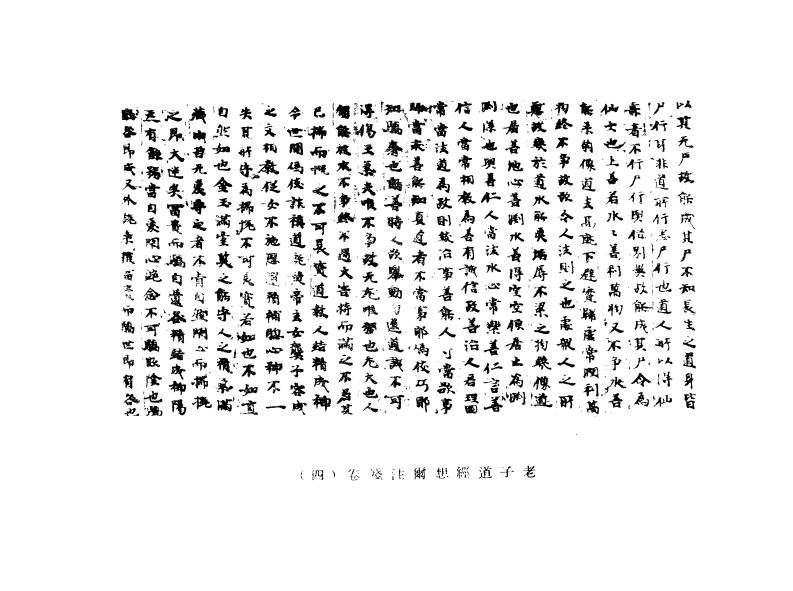 以其无尸故能成其尸不知長生之道身皆
尸行耳非道所行悉尸行也道人所以得仙
壽者不行尸行與俗別異故能成其尸令為
仙士也上善若水水善利萬物又不爭水善
能柔弱像道去高就下避實歸虛常潤利萬
物終不爭故欲令人法則之也處衆人之所
惡故幾於道水能受垢辱不潔之物幾像道
也居善地心善淵水善得窐空便居止為淵
淵深也與善仁人當法水心常樂善仁言善
信人當常相教為善有誠信政善治人君理國
常當法道為政則致治事善能人等當欲事
師當求善能知真道者不當事耶偽伎巧耶
知驕奢也動善時人欲舉動勿違道誡不可
得傷王氣夫唯不爭故无尤唯獨也尤大也人
獨能放水不爭終不遇大害持而滿之不若其
已揣而悅之不可長寶道教人結精成神
今世間偽伎詐稱道託黃帝玄女龔子容成
之文相教從女不施思還精補腦心神不一
失其所守為揣悅不可長寶若如也不如直
自然如也金玉滿室莫之能守人之精氣滿
藏中苦无愛守之者不肯自然閉心而揣捝
之即大迷矣富貴而驕自遺咎精結成神陽
炁有餘務當自愛閉心絕念不可驕欺陰也驕
欺咎即成又外說秉權富貴而驕世即有咎也
老子道經想爾注殘卷（四）